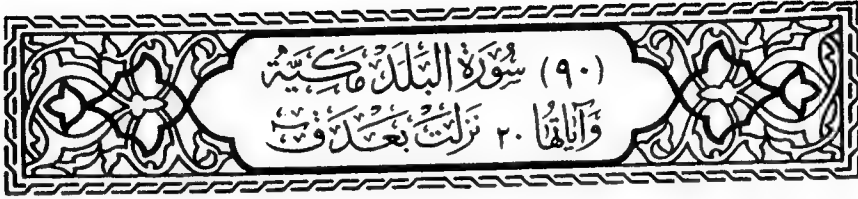 (٩٠) سُورَةُ الْبَلَدِ مَكِّيَّةٌ
وَآيَاتُهَا ٢٠ نَزَلَتْ بَعْدَ ق